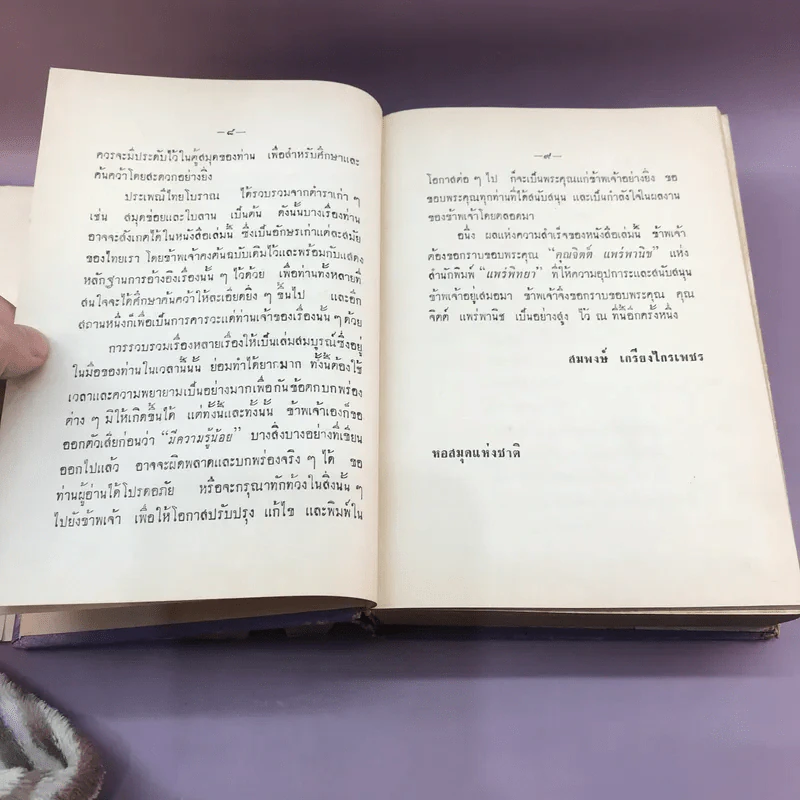 —๘—
ควรจะมีประดับไว้ในตู้สมุดของท่าน เพื่อสำหรับศึกษาและ
ค้นคว้าโดยสะดวกอย่างยิ่ง
ประเพณีไทยโบราณ ได้รวบรวมจากตำราเก่า ๆ
เช่น สมุดข่อยและใบลาน เป็นต้น ดังนั้นบางเรื่องท่าน
อาจจะสังเกตได้ในหนังสือเล่มนี้ ซึ่งเป็นอักษรเก่าแต่ละสมัย
ของไทยเรา โดยข้าพเจ้าคงต้นฉบับเดิมไว้และพร้อมกับแสดง
หลักฐานการอ้างอิงเรื่องนั้น ๆ ไว้ด้วย เพื่อท่านทั้งหลายที่
สนใจจะได้ศึกษาค้นคว้าให้ละเอียดยิ่ง ๆ ขึ้นไป และอีก
สถานหนึ่งก็เพื่อเป็นการคารวะแด่ท่านเจ้าของเรื่องนั้น ๆ ด้วย
การรวบรวมเรื่องหลายเรื่องให้เป็นเล่มสมบูรณ์ซึ่งอยู่
ในมือของท่านในเวลานี้นั้น ย่อมทำได้ยากมาก ทั้งนี้ต้องใช้
เวลาและความพยายามเป็นอย่างมากเพื่อกันข้อตกบกพร่อง
ต่าง ๆ มิให้เกิดขึ้นได้ แต่ทั้งนี้และทั้งนั้น ข้าพเจ้าเองก็ขอ
ออกตัวเสียก่อนว่า “มีความรู้น้อย” บางสิ่งบางอย่างที่เขียน
ออกไปแล้ว อาจจะผิดพลาดและบกพร่องจริง ๆ ได้ ขอ
ท่านผู้อ่านได้โปรดอภัย หรือจะกรุณาทักท้วงในสิ่งนั้น ๆ
ไปยังข้าพเจ้า เพื่อให้โอกาสปรับปรุง แก้ไข และพิมพ์ใน
—๙—
โอกาสต่อ ๆ ไป ก็จะเป็นพระคุณแก่ข้าพเจ้าอย่างยิ่ง ขอ
ขอบพระคุณทุกท่านที่ได้สนับสนุน และเป็นกำลังใจในผลงาน
ของข้าพเจ้าโดยตลอดมา
อนึ่ง ผลแห่งความสำเร็จของหนังสือเล่มนี้ ข้าพเจ้า
ต้องขอกราบขอบพระคุณ “คุณจิตต์ แพร่พานิช” แห่ง
สำนักพิมพ์ “แพร่พิทยา” ที่ให้ความอุปการะและสนับสนุน
ข้าพเจ้าอยู่เสมอมา ข้าพเจ้าจึงขอกราบขอบพระคุณ คุณ
จิตต์ แพร่พานิช เป็นอย่างสูง ไว้ ณ ที่นี้อีกครั้งหนึ่ง
สมพงษ์ เกรียงไกรเพชร
หอสมุดแห่งชาติ